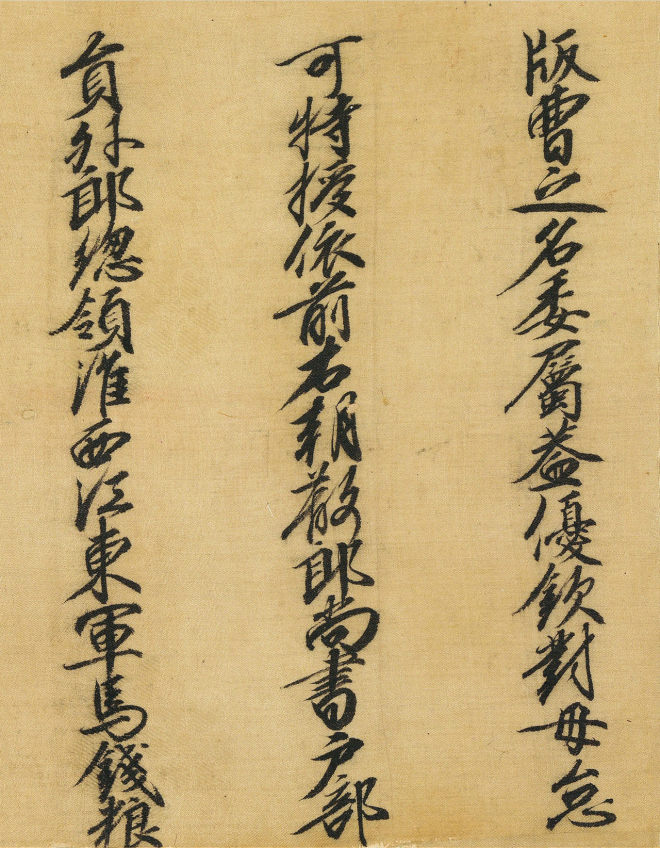 版曹之名委屬蓋優欽對毋怠
可特授依前右朝散郎尚書户部
員外郎總領淮西江東軍馬錢粮